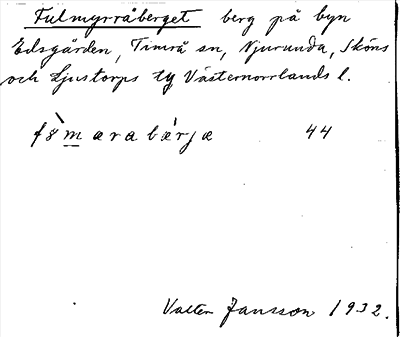 Fulmyrråberget berg på byn
Edsgården, Timrå sn, Njurunda, Sköns
och Ljustorps tg Västernorrlands l.
fò̀marabærjæ 44
Valter Jansson 1932.